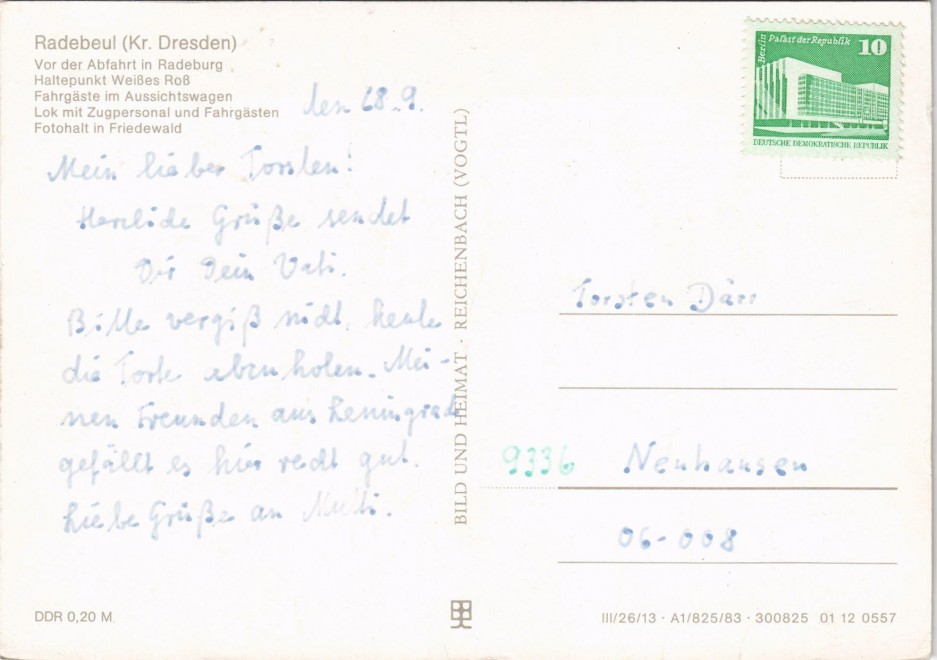 Radebeul (Kr. Dresden)
Vor der Abfahrt in Radeburg
Haltepunkt Weißes Roß
Fahrgäste im Aussichtswagen
Lok mit Zugpersonal und Fahrgästen
Fotohalt in Friedewald
den 18.9.
Mein lieber Torsten!
Herzliche Grüße sendet
Dir Dein Vati.
Bitte vergiß nicht, heute
die Torte holen. Mei-
nen Freunden aus Leningrad
gefällt es hier recht gut.
Liebe Grüße an Mutti.
DDR 0,20 M
BILD UND HEIMAT · REICHENBACH (VOGTL)
Berlin
Palast der Republik
10
DEUTSCHE DEMOKRATISCHE REPUBLIK
Torsten Därr
9336 Neuhausen
06-008
III/26/13 · A1/825/83 · 300825 01 12 0557